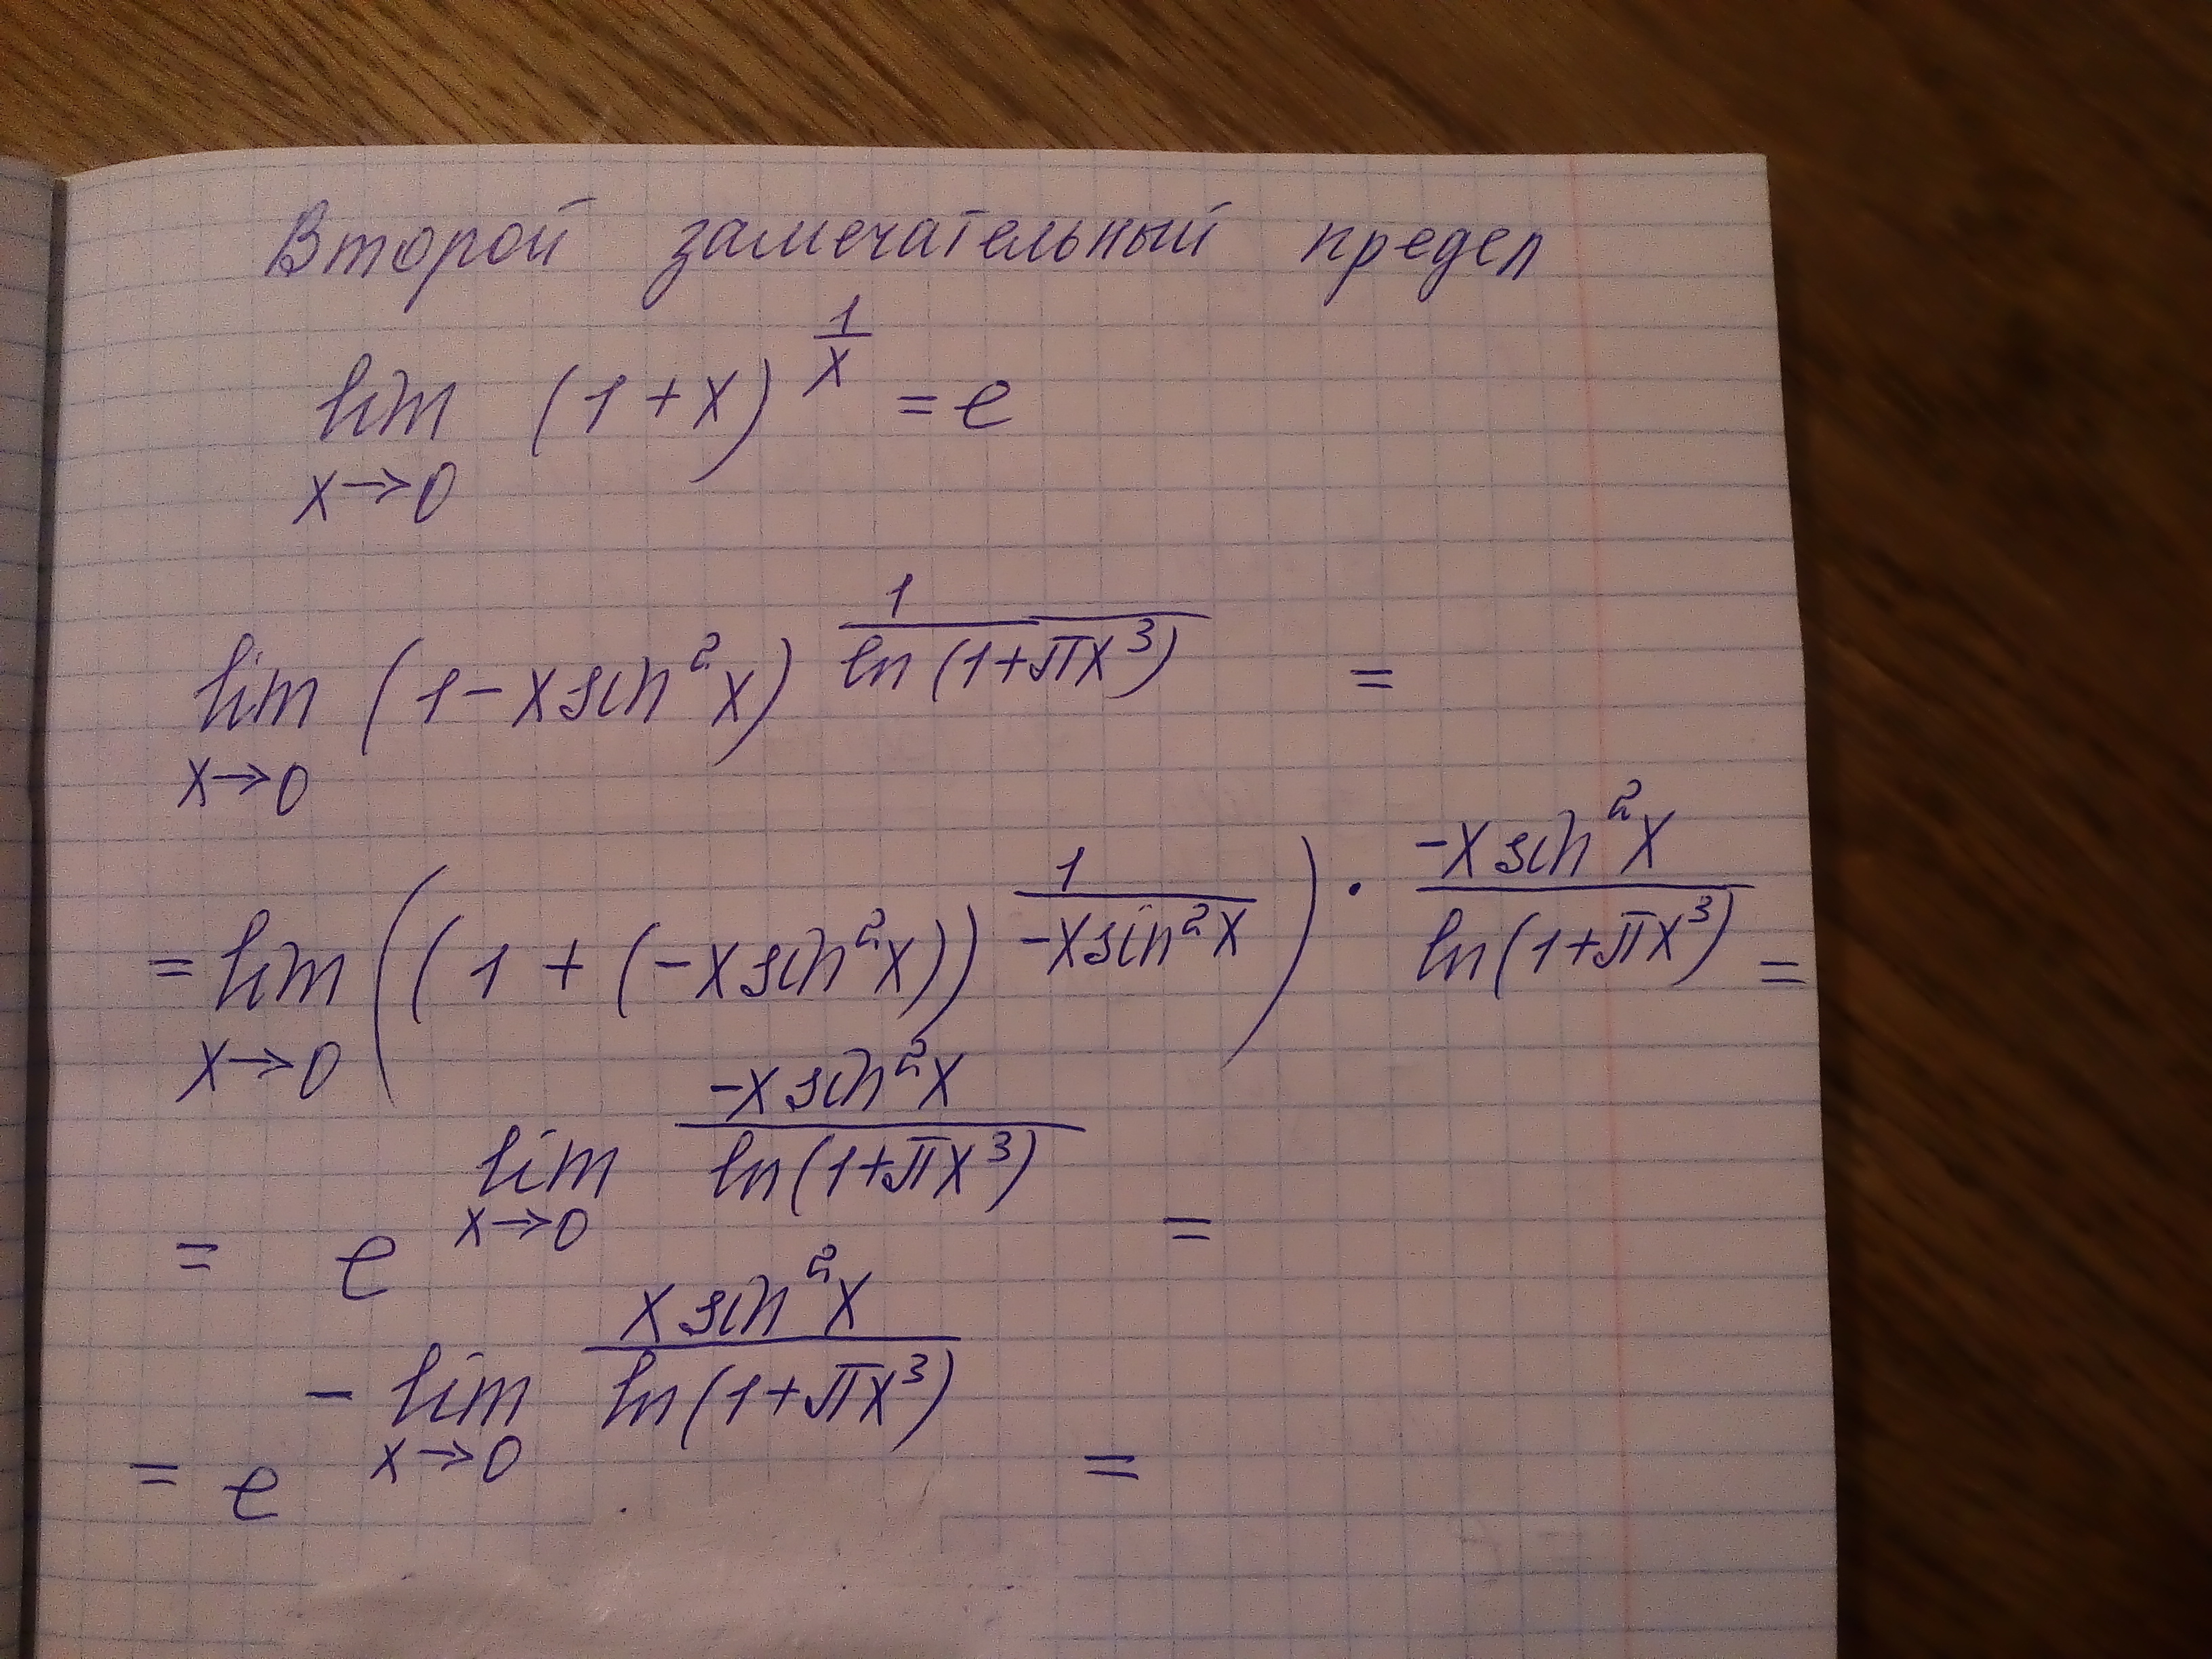 Второй замечательный предел
lim x→0 (1+x)^(1/x) = e
lim x→0 (1-x sin²x)^(1/ln(1+πx³)) =
= lim x→0 ((1+(-x sin²x))^(1/(-x sin²x))) · (-x sin²x)/(ln(1+πx³)) =
= e^(lim x→0 (-x sin²x)/(ln(1+πx³))) =
= e^(- lim x→0 (x sin²x)/(ln(1+πx³))) =